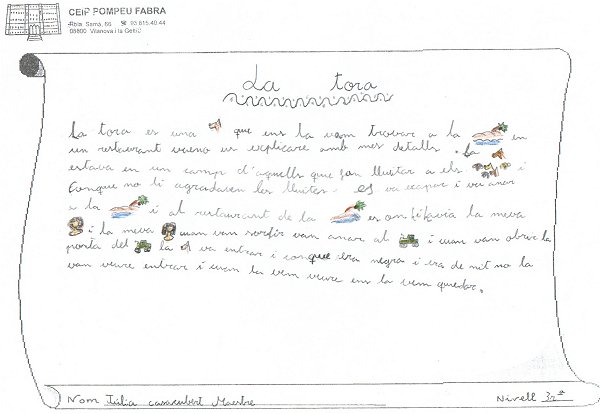 CEiP POMPEU FABRA
Rbla. Samà, 66 ☎ 93 815 40 44
08800 Vilanova i la Geltrú
La tora
La tora es una que ens la vam trovar a la en
un restaurant bueno us explicaré amb mes detalls. La
estava en un camp d'aquells que fan lluitar a els i
Conque no li agradaven les lluites. es va escapar i va anar
a la i al restaurant de la es on hi havia la meva
i la meva cuan van sortir van anar al i cuan van obrir la
porta del la va entrar i conque era negra i era de nit no la
van veure entrar i cuan la vam veure ens la vem quedar.
Nom Júlia casacubert Maestre
Nivell 3r